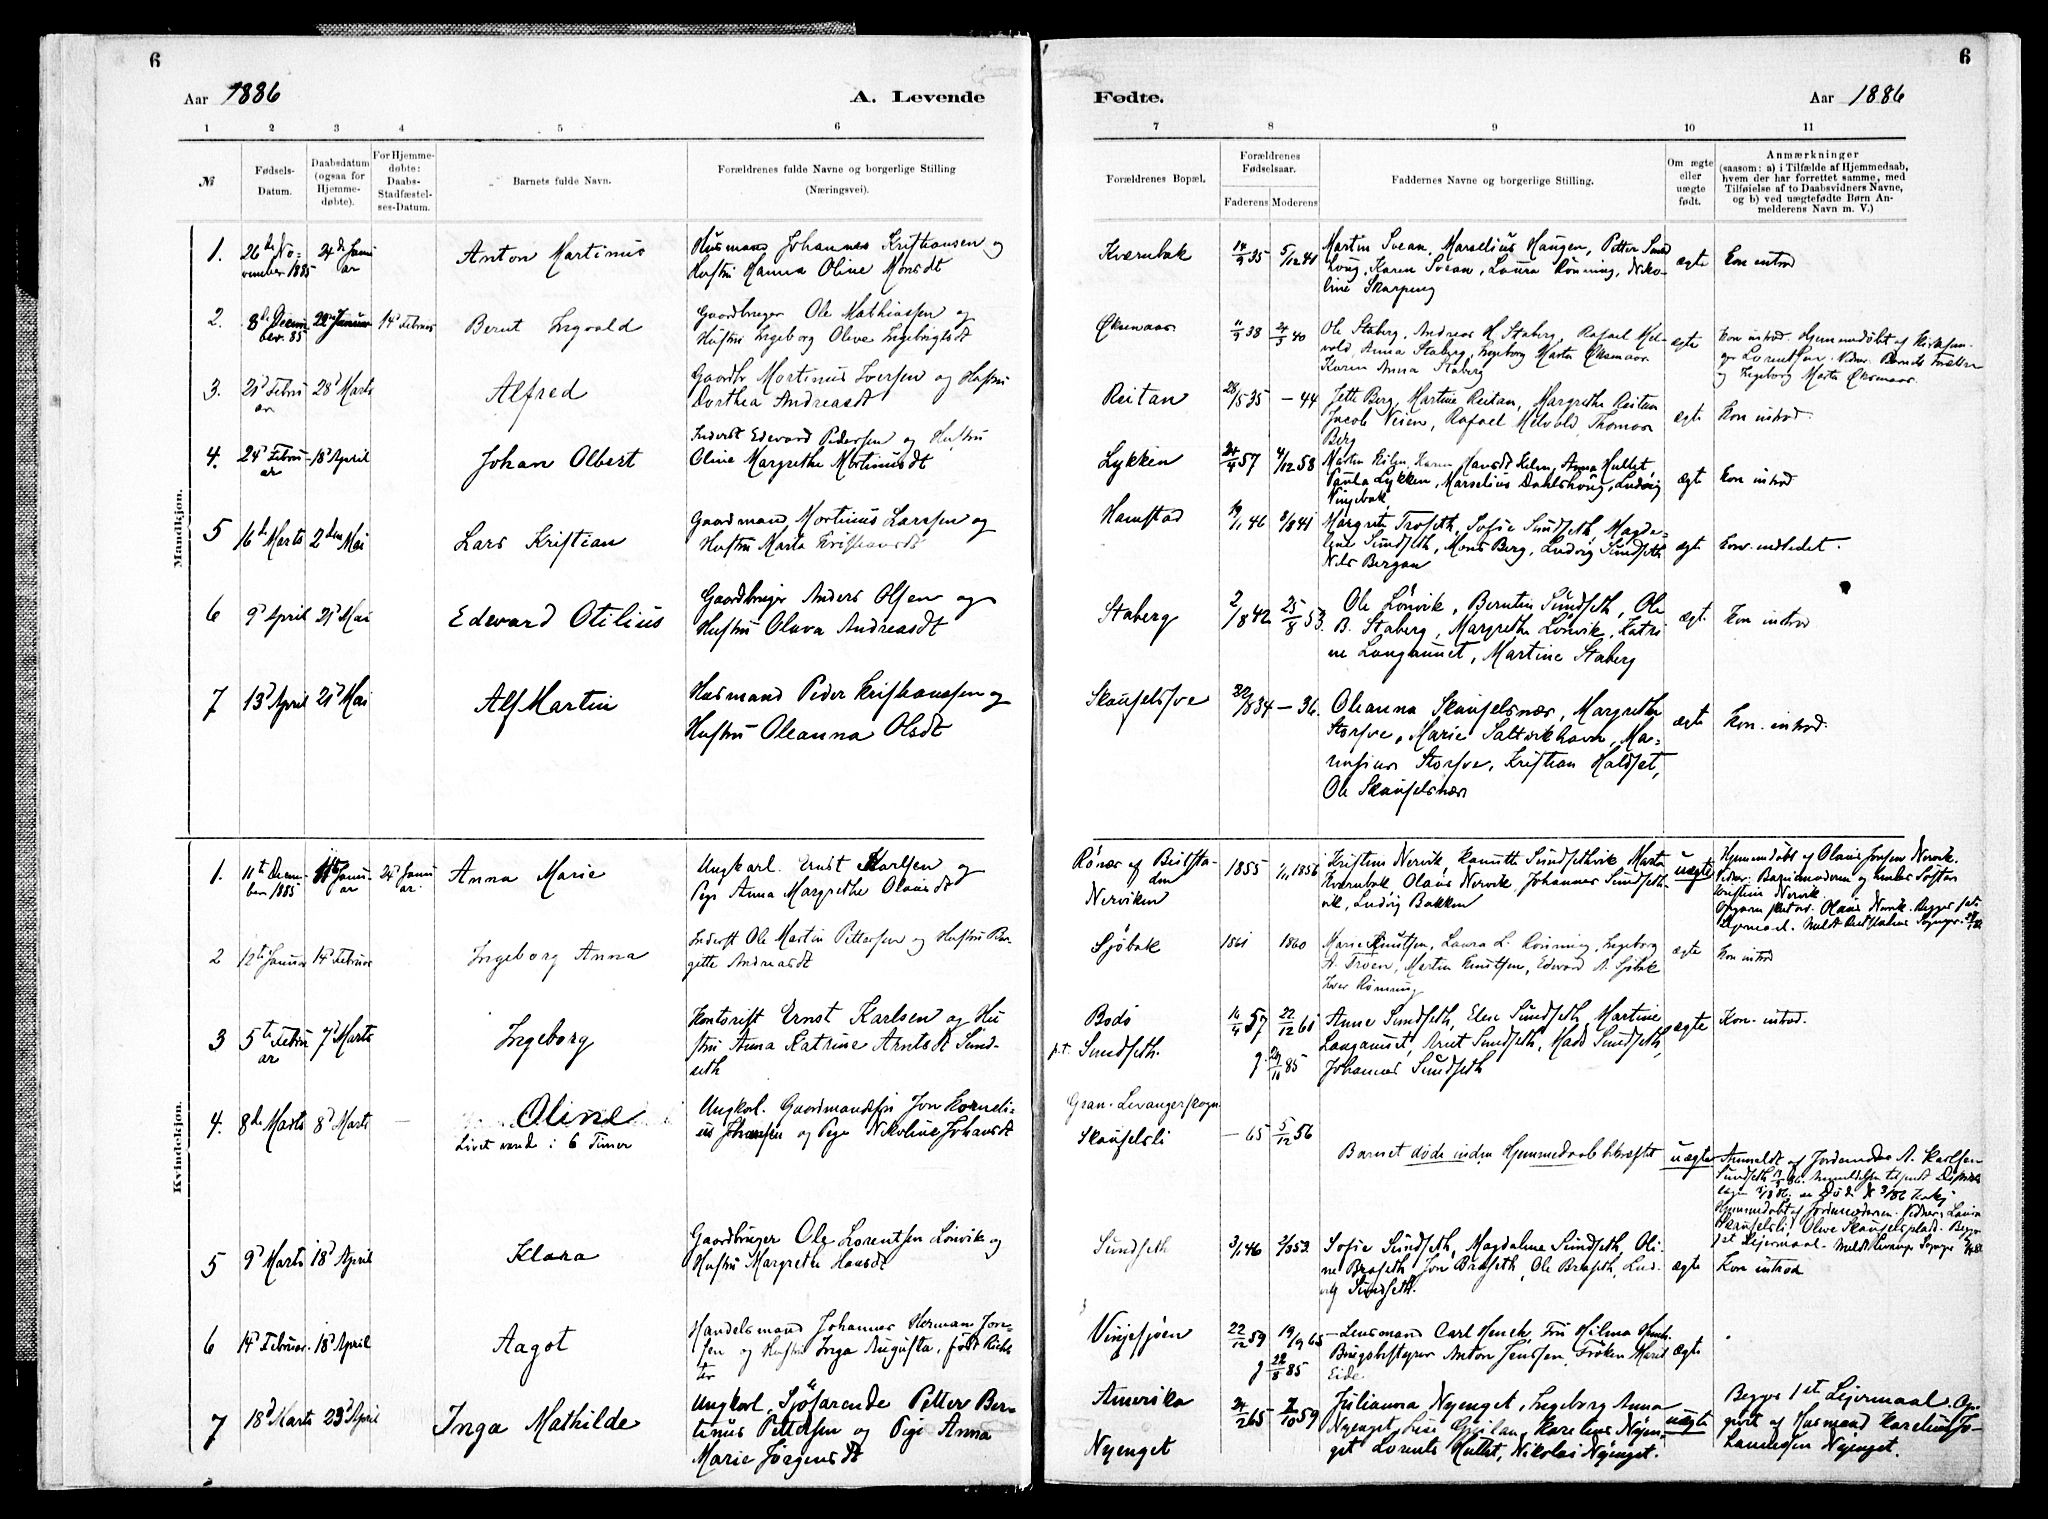 6
6
Aar 1886
A. Levende
Fødte.
Aar 1886
1 2 3 4 5 6
7 8 9 10 11
№
Fødsels-
Datum.
Daabsdatum
(ogsaa for
Hjemme-
døbte).
For Hjemme-
døbte:
Daabs-
Stadfæstel-
ses-Datum.
Barnets fulde Navn.
Forældrenes fulde Navne og borgerlige Stilling
(Næringsvei).
Forældrenes Bopæl.
Forældrenes
Fødselsaar.
Faderens Moderens
Faddernes Navne og borgerlige Stilling.
Om ægte
eller
uægte
født.
Anmærkninger
(saasom: a) i Tilfælde af Hjemmedaab,
hvem der har forrettet samme, med
Tilføielse af to Daabsvidners Navne,
og b) ved uægtefødte Børn An-
melderens Navn m. V.)
Mandkjøn.
1. 26de No-
vember 1885
24de Janu
ar
Anton Martinus
Husmand Johannes Kristiansen og
Hustru Hanna Oline Monsdt
Kværnbak
14/9 35 5/12 41
Martin Svean, Marselius Haugen, Petter Sund
houg, Karen Svean, Laura Rönning, Niko-
line Skarpeng
ægte
Kon introd
2. 8de Decem
ber. 85
14d Februar
Bernt Ingvald
Gaardbruger Ole Mathiassen og
Hustru Ingeborg Oline Ingebrigtsdt
Øksnaas
11/9 38 24/3 40
Ole Staberg, Andreas H. Staberg, Rafael Mel-
vold, Anna Staberg, Ingeborg Marta Øksnaas
Karen Anna Staberg
ægte
Kon introd. Hjemmedøbt af Kirkesan-
ger Lorentsen. Vidner. Barnets Forældre
og Ingeborg Marta Øksnaas.
3. 21d Febru
ar
28d Marts
Alfred
Gaardbr Martinus Iversen og Hustru
Dorthea Andreasdt
Reitan
28/5 35 – 44
Jette Berg, Martine Reitan, Margrethe Reitan
Jacob Veien, Rafael Melvold, Thomas
Berg
ægte
Kon introd.
4. 24d Febru
ar
18d April
Johan Olbert
Inderst Edevard Pedersen og Hustru
Oline Margrethe Martinusdt
Lykken
24/4 57 4/12 58
Paula Lykken, Marselius Dahlshoug, Ludvig
ægte
Kon introd
5 16de Marts 2den Mai
Lars Kristian
Gaardmand Mortinus Larssen og
Hustru Marta Kristiansdt
Hamstad
19/1 46 8/8 41
Margrete Troseth, Sofie Sundseth, Magda-
lene Sundseth, Mons Berg, Ludvig Sundseth
Nils Bergan
ægte
Kon. indledet.
6 9d April 21d Mai
Edevard Otilius
Gaardbruger Anders Olsen og
Hustru Olava Andreasdt
Staberg
2/8 42 25/8 53.
Ole Lönvik, Berntin Sundseth, Ole
B. Staberg, Margrethe Lönvik, Katri
ne Langamset, Martine Staberg
ægt.
Kon introd
7 13d April 21d Mai
Alf Martin
Husmand Peder Kristianssen og
Hustru Oleanna Olsdt
22/8 34 – 36.
Oleanna Skauselsnæs, Margrethe
Storsve, Marie Saltvikhavn, Ma-
rinsius Storsve, Kristian Haldset,
Ole Skauselsnæs
ægte
Kon. introd.
Kvindekjøn.
1. 11te Decem-
ber 1885
24d Janu
ar.
Anna Marie
Ungkarl. Ernst Karlsen og
Pige Anna Margrethe Olausdt
Rönæs af Beitsta-
den
Nerviken
1855 1/1 1856
Kristine Nervik, Kanutte Sundsethvik, Marta
Kværnbak, Olaus Nervik, Johannes Sundseth-
vik, Ludvig Bakken
uægte
Hjemmedøbt af Olaus Jonsen Nervik.
Vidner. Barnemoderen og hendes Søster
Kristine Nervik
2 12te Januar 14d Februar
Ingeborg Anna
Inderst Ole Martin Pettersen og Hustru Ber-
gitte Andreasdt
Sjöbak
1861 1860
Marie Knutsen, Laura L. Rönning, Ingeborg
A. Troen, Martin Knutsen, Edevard A. Sjöbak
Iver Rönning
ægte
Kon introd
3 5te Febru
ar
7d Marts
Ingeborg
Kontorist Ernst Karlsen og Hu
stru Anna Katrine Arntsdt Sund-
seth
Bodö
p.t. Sundseth.
14/4 57 22/12 61
Anne Sundseth, Elen Sundseth, Martine
Langamset, Arnt Sundseth, Mads Sundseth,
Johannes Sundseth
ægte
Kon. introd.
4. 8de Marts 8d Marts –
Oline
Livet varede i 6 Timer
Ungkarl. Gaardmandssøn Jon Korneli-
us Johansen og Pige Nikoline Johansdt
Gran. Levanger sogn
Skauselsli
– 65 5/12 56
Barnet døde inden Hjemmedaab bekræftet
uægte
Anmeldt af Jordemoder A. Karlsen
5 9d Marts 18d April
Klara
Gaardbruger Ole Lorentsen Lönvik og
Hustru Margrethe Hansdt
Sundseth
3/1 46 2/3 53.
Sofie Sundseth, Magdalene Sundseth, Oli-
ne Braseth, Jon Braseth, Ole Braseth, Lud-
vig Sundseth.
ægte
Kon introd
6 14d Februar. 18d April
Aagot
Handelsmand Johannes Herman Jen-
sen og Hustru Inga Augusta, født Rich-
ter
Vinjesjøen
22/12 59 19/9 65
– Lensmand Carl Hench, Fru Hilma Hench,
Brugsbestyrer Anton Jenssen, Frøken Marit
Eide
ægte
7 18d Marts 23d April
Inga Mathilde
Ungkarl, Sjöfarende Petter Ber-
tinus Pettersen og Pige Anna
Marie Jörgensdt
Amerika
Nyenget
24/2 65 7/10 59
Julianna Nyenget, Ingeborg Anna
Nyenget, Karelius Nyen-
get Lorents Hullet, Nikolai Nyenget.
uægte
Begges 1st Leiermaal. Op-
givet af Husmand Karelius Jo-
hannesen Nyenget.